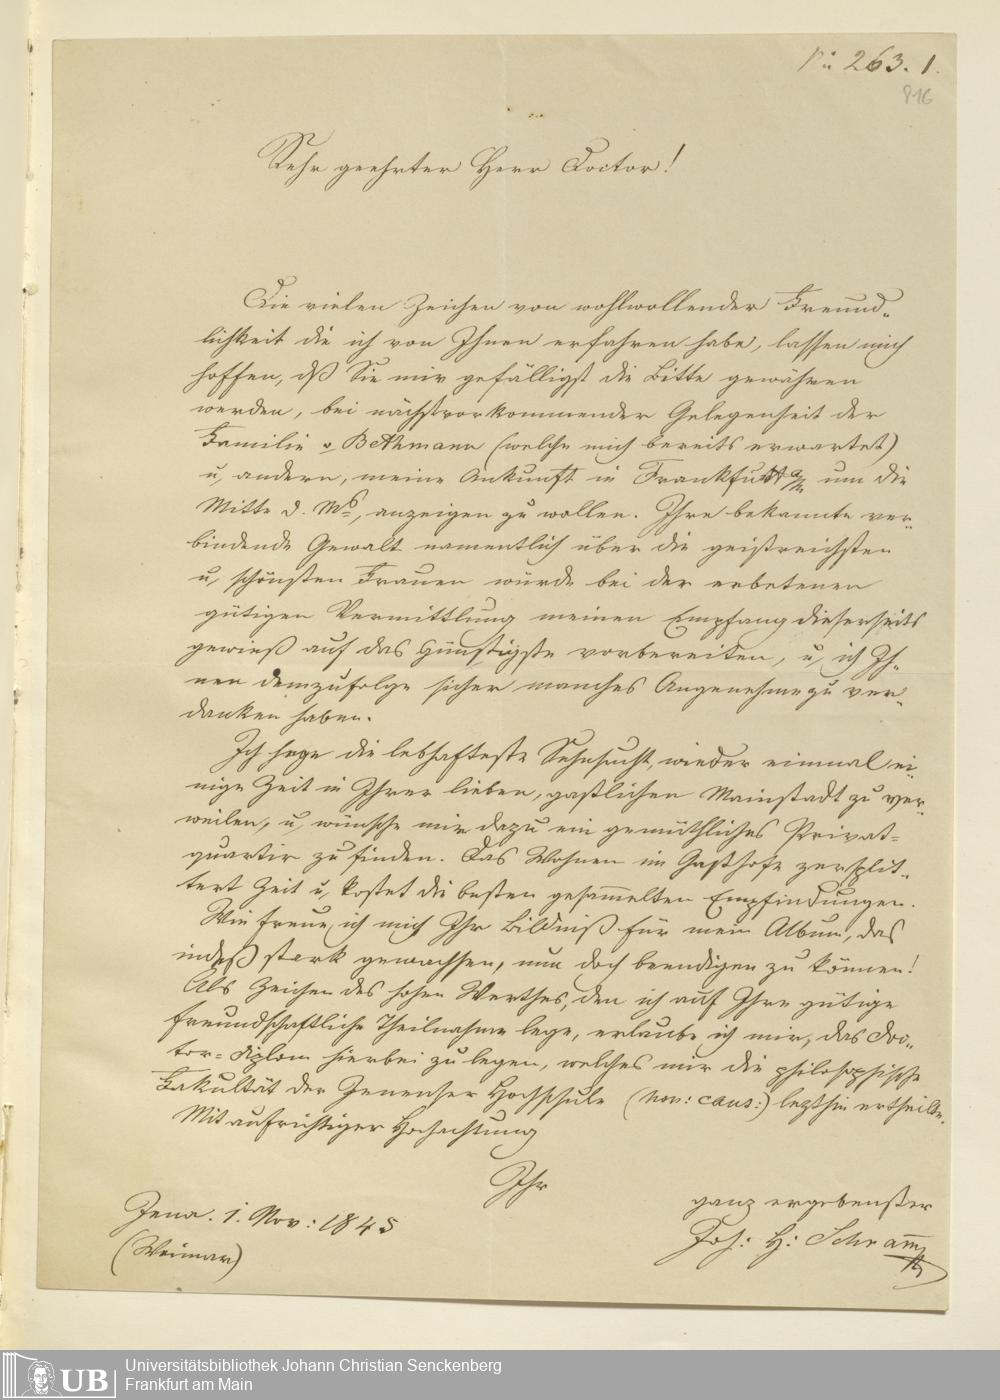 No: 263. 1.
816
Sehr geehrter Herr Doctor!
Die vielen Zeichen von wohlwollender Freund-
lichkeit die ich von Ihnen erfahren habe, lassen mich
hoffen, dß Sie mir gefälligst die Bitte gewähren
werden, bei nächstvorkommender Gelegenheit der
Familie v Bethmann (welche mich bereits erwartet)
u, andern, meine Ankunft in Frankfurt a/M um die
Mitte d. Mts, anzeigen zu wollen. Ihre bekannte ver-
bindende Gewalt namentlich über die geistreichsten
u, schönsten Frauen würde bei der erbetenen
gütigen Vermittlung meinen Empfang dieserseits
gewiß auf das Günstigste vorbereiten, u, ich Ih-
nen demzufolge sicher manches Angenehme zu ver-
danken haben.
Ich hege die lebhafteste Sehnsucht, wieder einmal ei-
nige Zeit in Ihrer lieben, gastlichen Mainstadt zu ver-
weilen, u, wünsche mir dazu ein gemüthliches Privat-
quartir zu finden. Das Wohnen im Gasthofe zersplit-
tert Zeit u, kostet die besten gesammelten Empfindungen.
Wie freue ich mich Ihr Bildniß für mein Album, das
indeß stark gewachsen, nun doch beendigen zu können!
Als Zeichen des hohen Werthes, den ich auf Ihre gütige
freundschaftliche Theilnahme lege, erlaube ich mir, das Doc-
tor-Diplom hierbei zu legen, welches mir die philosophische
Fakultät der Jenenser Hochschule (hon: caus:) letzthin ertheilte.
Mit aufrichtiger Hochachtung
Ihr
ganz ergebenster
Joh: H: Schramm
Jena. 1. Nov: 1845
(Weimar)
UB
Universitätsbibliothek Johann Christian Senckenberg
Frankfurt am Main